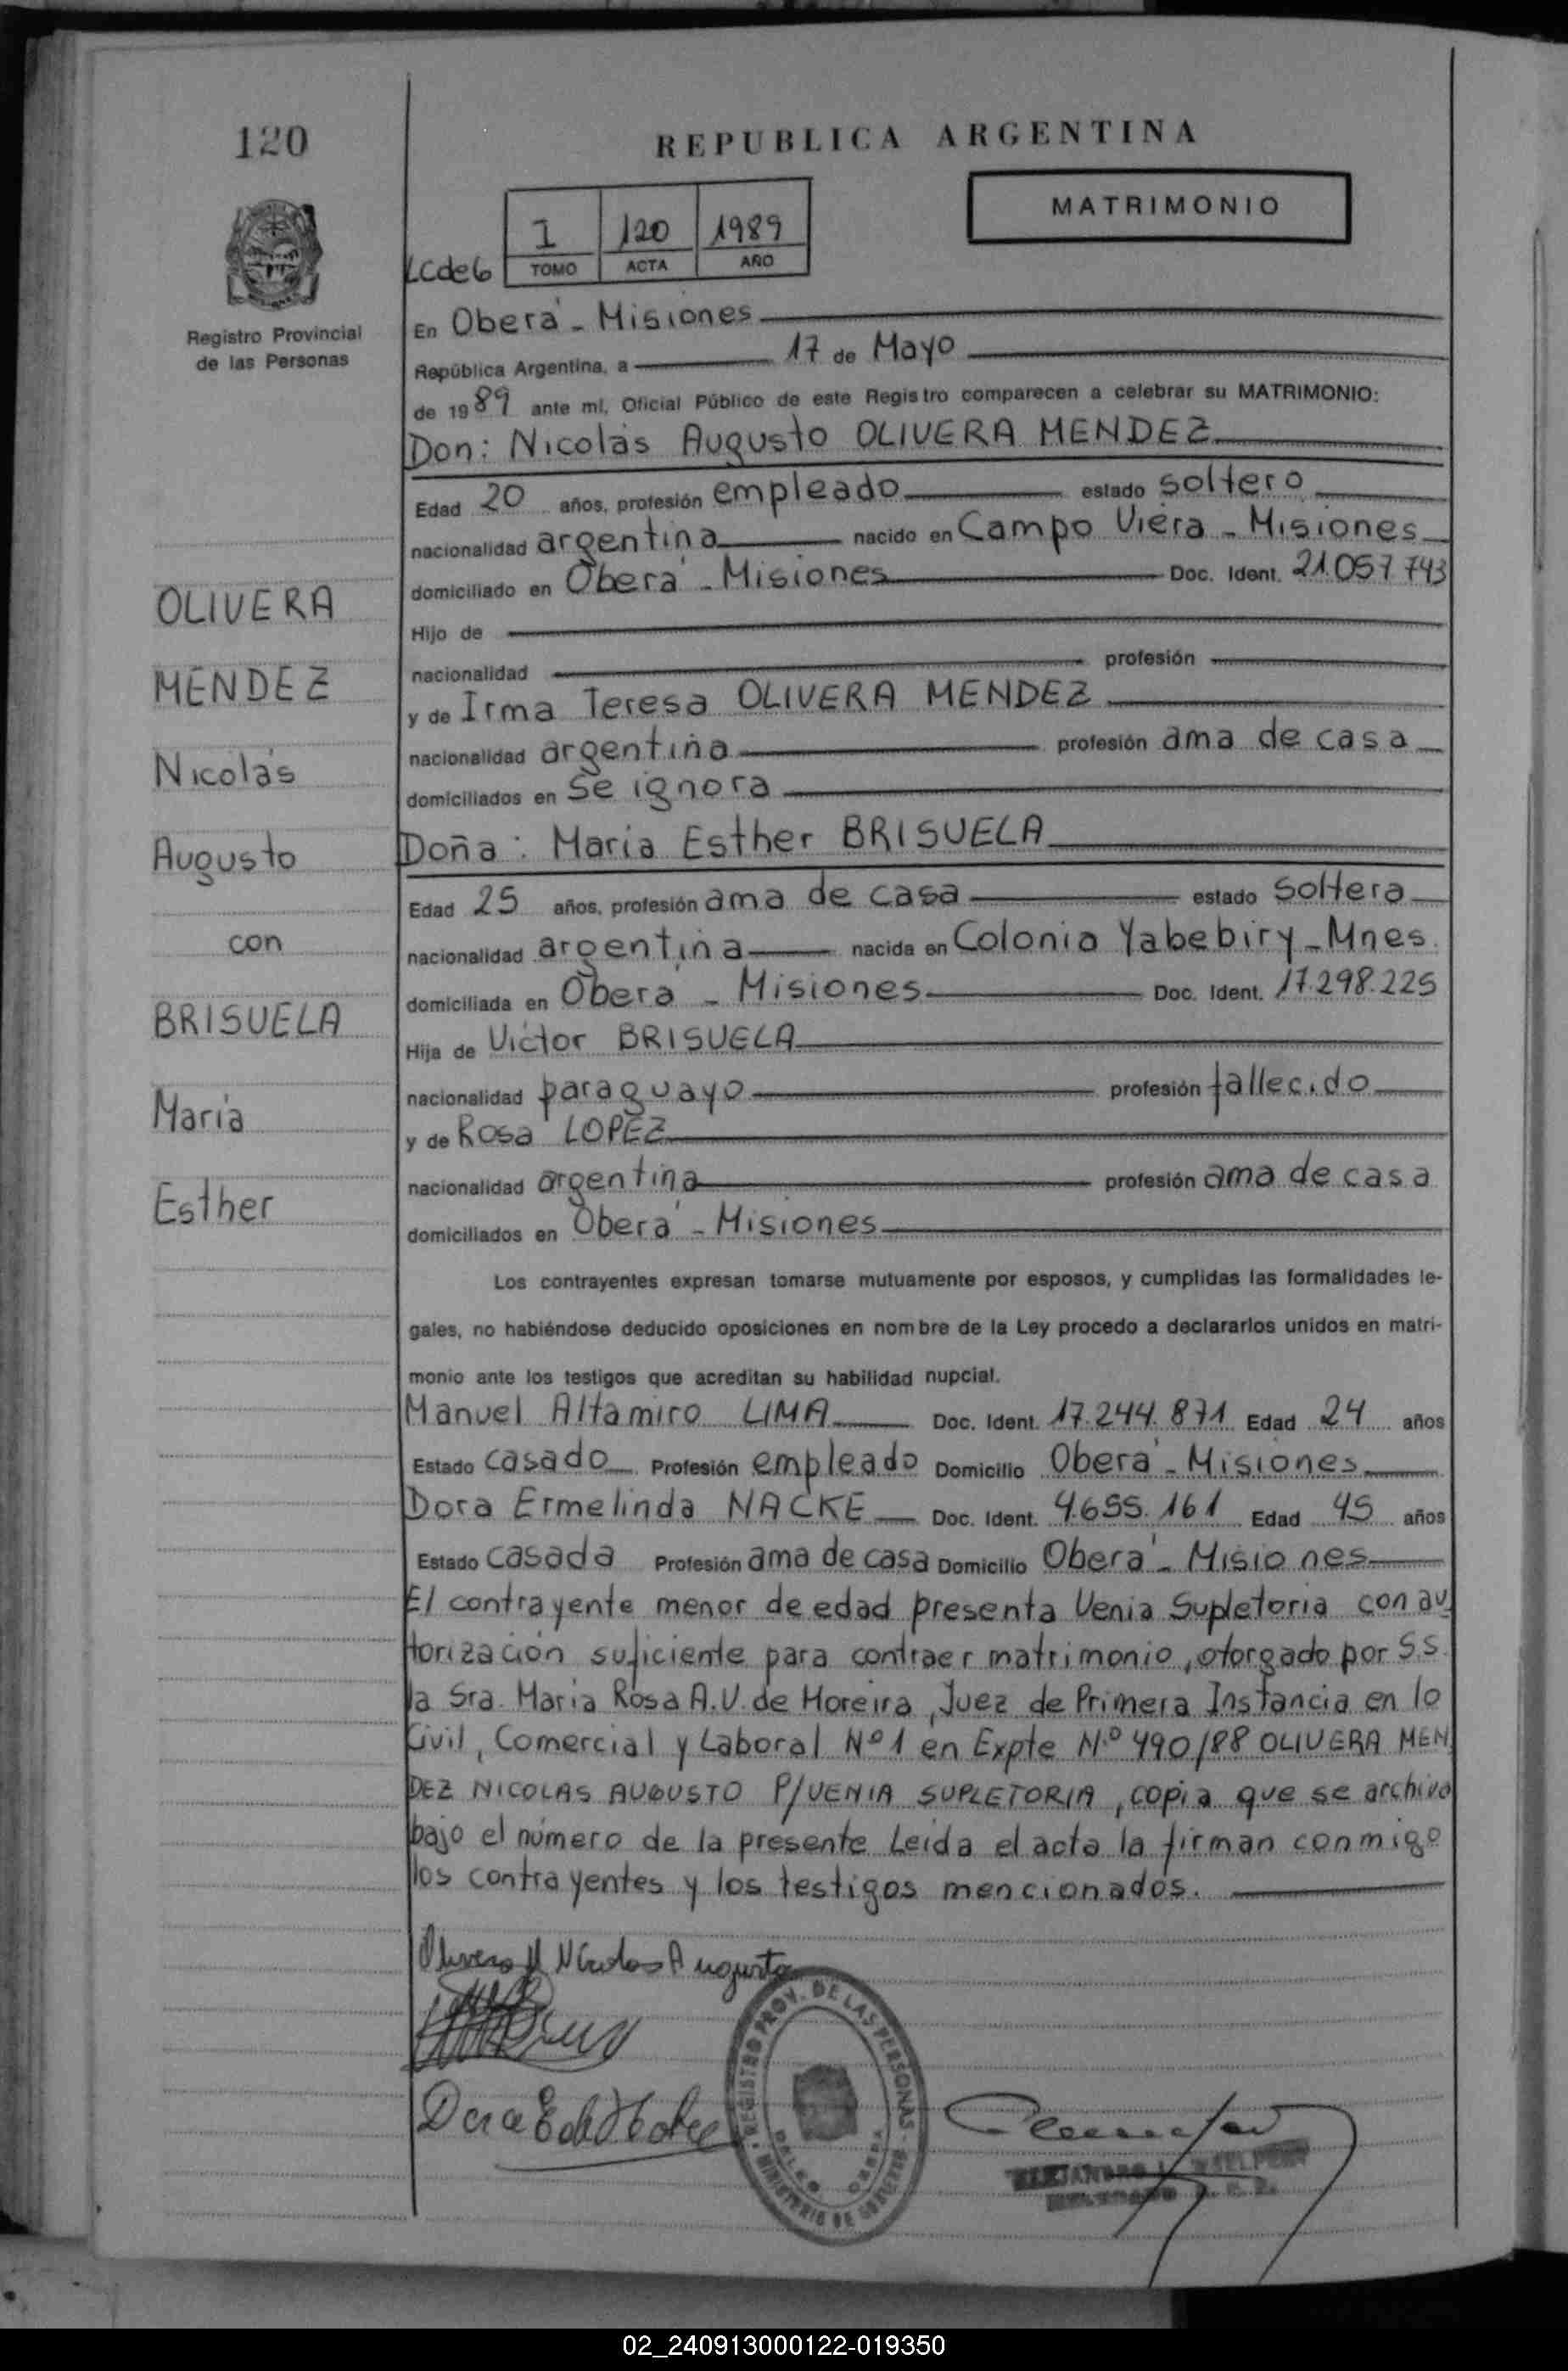 120
REPUBLICA ARGENTINA
MATRIMONIO
I 120 1989
LCde6 TOMO ACTA AÑO
Registro Provincial
de las Personas
En Oberá - Misiones
República Argentina, a 17 de Mayo
de 1989 ante mí, Oficial Público de este Registro comparecen a celebrar su MATRIMONIO:
Don: Nicolás Augusto OLIVERA MENDEZ
Edad 20 años, profesión empleado estado soltero
nacionalidad argentina nacido en Campo Viera - Misiones
domiciliado en Oberá - Misiones Doc. Ident. 21.057.743
Hijo de
nacionalidad profesión
y de Irma Teresa OLIVERA MENDEZ
nacionalidad argentina profesión ama de casa
domiciliados en se ignora
Doña: María Esther BRISUELA
Edad 25 años, profesión ama de casa estado soltera
nacionalidad argentina nacida en Colonia Yabebiry - Mnes.
domiciliada en Oberá - Misiones Doc. Ident. 17.298.225
Hija de Víctor BRISUELA
nacionalidad paraguayo profesión fallecido
y de Rosa LOPEZ
nacionalidad argentina profesión ama de casa
domiciliados en Oberá - Misiones
OLIVERA
MENDEZ
Nicolás
Augusto
con
BRISUELA
María
Esther
Los contrayentes expresan tomarse mutuamente por esposos, y cumplidas las formalidades le-
gales, no habiéndose deducido oposiciones en nombre de la Ley procedo a declararlos unidos en matri-
monio ante los testigos que acreditan su habilidad nupcial.
Manuel Altamiro LIMA Doc. Ident. 17.244.871 Edad 24 años
Estado casado Profesión empleado Domicilio Oberá - Misiones
Dora Ermelinda NACKE Doc. Ident. 4.655.161 Edad 45 años
Estado casada Profesión ama de casa Domicilio Oberá - Misiones
El contrayente menor de edad presenta Venia Supletoria con au
torización suficiente para contraer matrimonio, otorgado por S.S.
la Sra. María Rosa A.V. de Moreira, Juez de Primera Instancia en lo
Civil, Comercial y Laboral Nº 1 en Expte Nº 490/88 OLIVERA MEN
DEZ NICOLAS AUGUSTO P/VENIA SUPLETORIA, copia que se archiva
bajo el número de la presente Leída el acta la firman conmigo
los contrayentes y los testigos mencionados.
Olivera M Nicolas Augusto
REGISTRO PROV. DE LAS PERSONAS
MINISTERIO DE GOBIERNO
Dora
ALEJANDRO
02_240913000122-019350